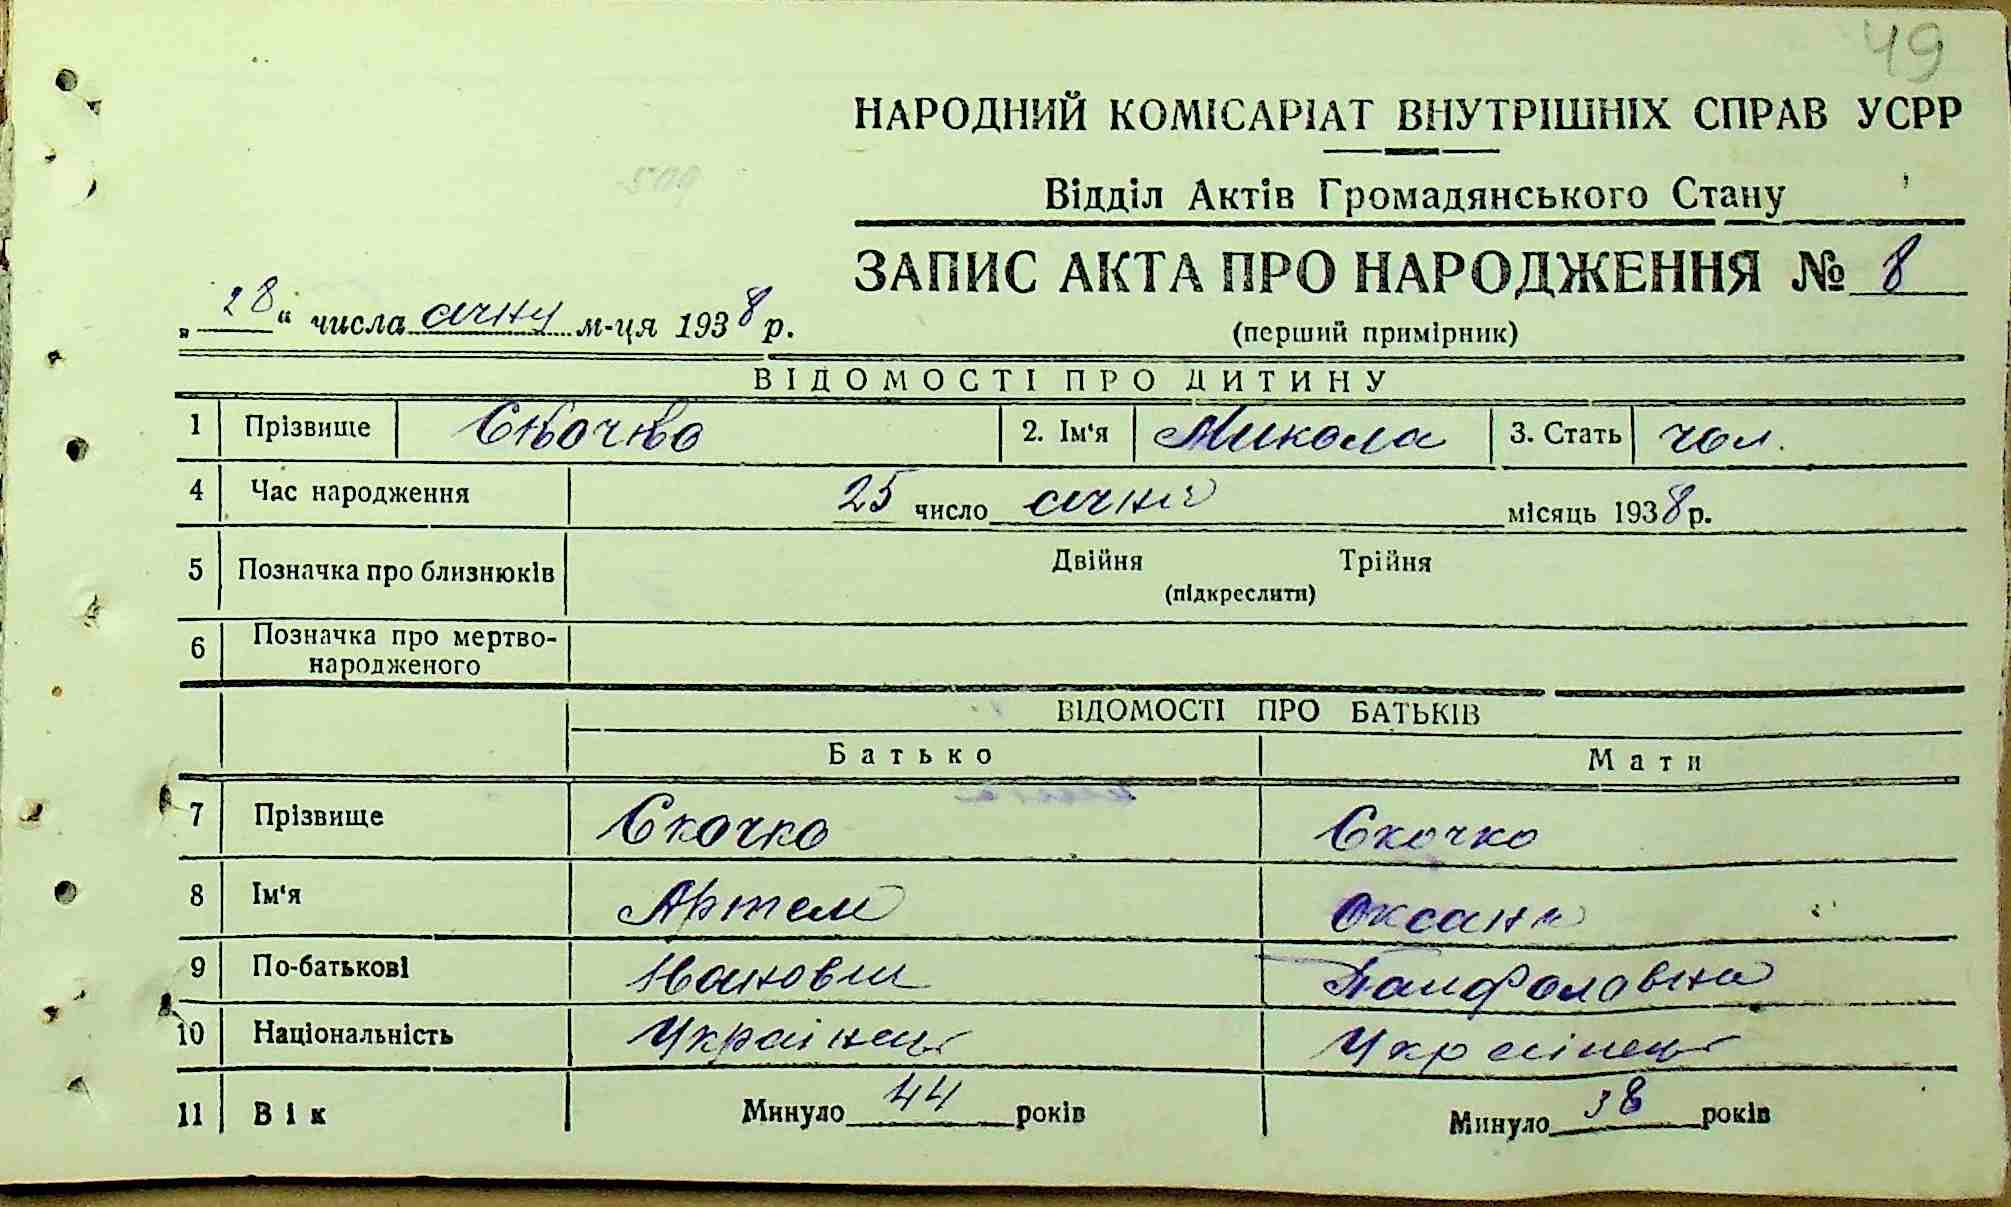 49
НАРОДНИЙ КОМІСАРІАТ ВНУТРІШНІХ СПРАВ УСРР
509
Відділ Актів Громадянського Стану
ЗАПИС АКТА ПРО НАРОДЖЕННЯ № 8
„28“ числа січня м-ця 1938 р.
(перший примірник)
ВІДОМОСТІ ПРО ДИТИНУ
1 Прізвище Скочко 2. Ім'я Микола 3. Стать чол.
4 Час народження 25 число січня місяць 1938 р.
5 Позначка про близнюків Двійня Трійня
(підкреслити)
6 Позначка про мертво-
народженого
ВІДОМОСТІ ПРО БАТЬКІВ
Батько Мати
7 Прізвище Скочко Скочко
8 Ім'я Артем Оксана
9 По-батькові
10 Національність Українець Українець
11 Вік Минуло 44 років Минуло 38 років